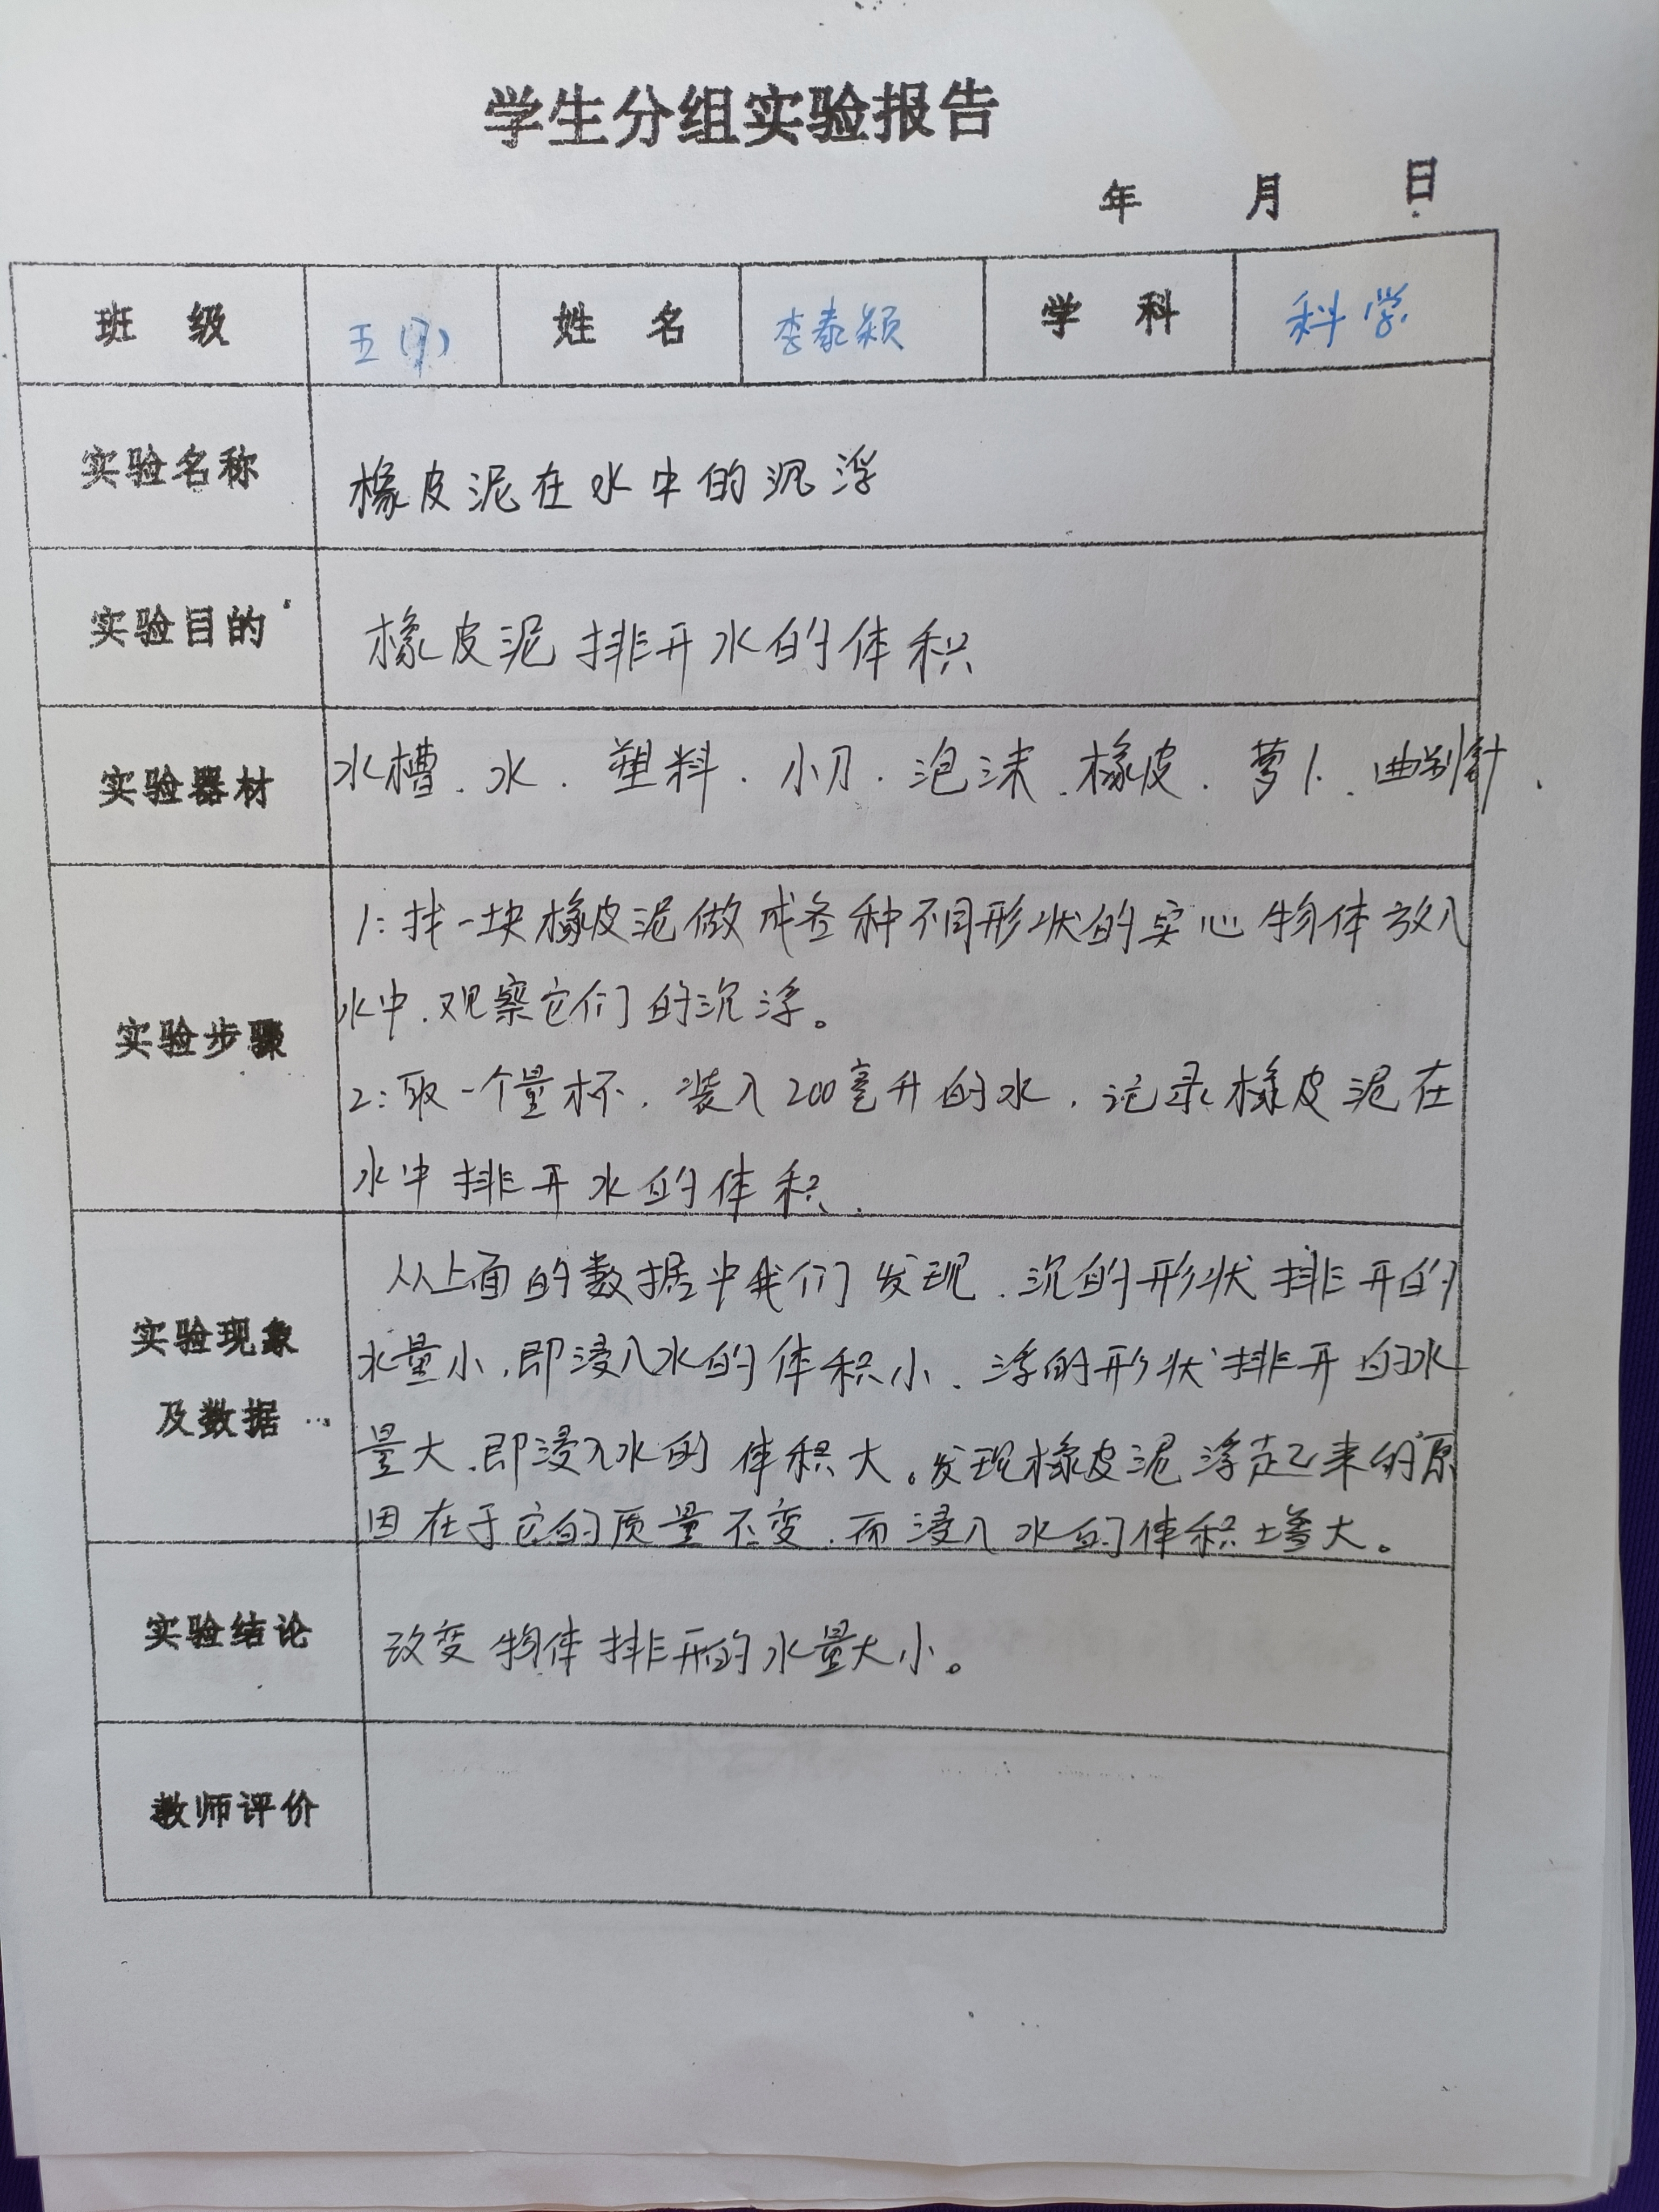 学生分组实验报告
年 月 日
班 级 五(7) 姓 名 李泰颖 学 科 科学
实验名称 橡皮泥在水中的沉浮
实验目的 橡皮泥排开水的体积
实验器材 水槽.水.塑料.小刀.泡沫.橡皮.萝卜.曲别针.
实验步骤
1:找一块橡皮泥做成各种不同形状的实心物体放入
水中.观察它们的沉浮。
2:取一个量杯.装入200毫升的水.记录橡皮泥在
水中排开水的体积.
实验现象
及数据
从上面的数据中我们发现.沉的形状排开的
水量小.即浸入水的体积小.浮的形状排开的水
量大.即浸入水的体积大。发现橡皮泥浮起来的原
因在于它的质量不变.而浸入水的体积增大。
实验结论 改变物体排开的水量大小。
教师评价